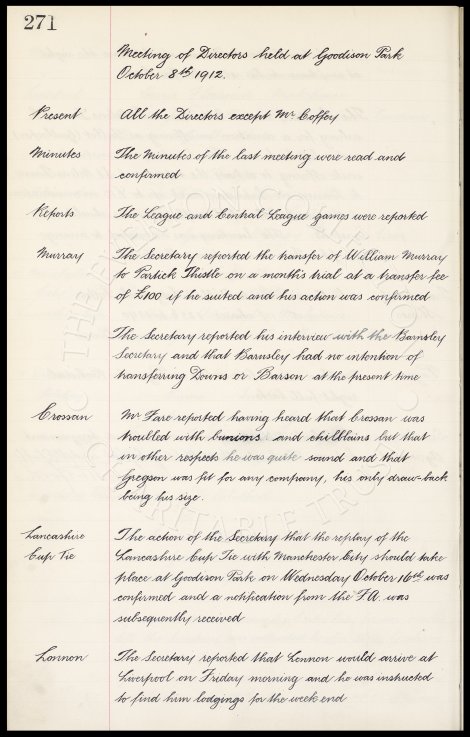 271
Meeting of Directors held at Goodison Park
October 8th 1912.
Present All the Directors except Mr Coffey
Minutes The Minutes of the last meeting were read and
confirmed
Reports The League and Central League games were reported
Murray The Secretary reported the transfer of William Murray
to Partick Thistle on a month's trial at a transfer fee
of £100 if he suited and his action was confirmed
The Secretary reported his interview with the Barnsley
Secretary and that Barnsley had no intention of
transferring Downs or Barson at the present time
Crossan Mr Fare reported having heard that Crossan was
troubled with bunions and chilblains but that
in other respects he was quite sound and that
Gregson was fit for any company, his only draw-back
being his size.
Lancashire The action of the Secretary that the replay of the
Cup Tie Lancashire Cup Tie with Manchester City should take
place at Goodison Park on Wednesday October 16th was
confirmed and a notification from the F.A. was
subsequently received
Lonnon The Secretary reported that Lonnon would arrive at
Liverpool on Friday morning and he was instructed
to find him lodgings for the week end
THE EVERTON COLLECTION
CHARITABLE TRUST